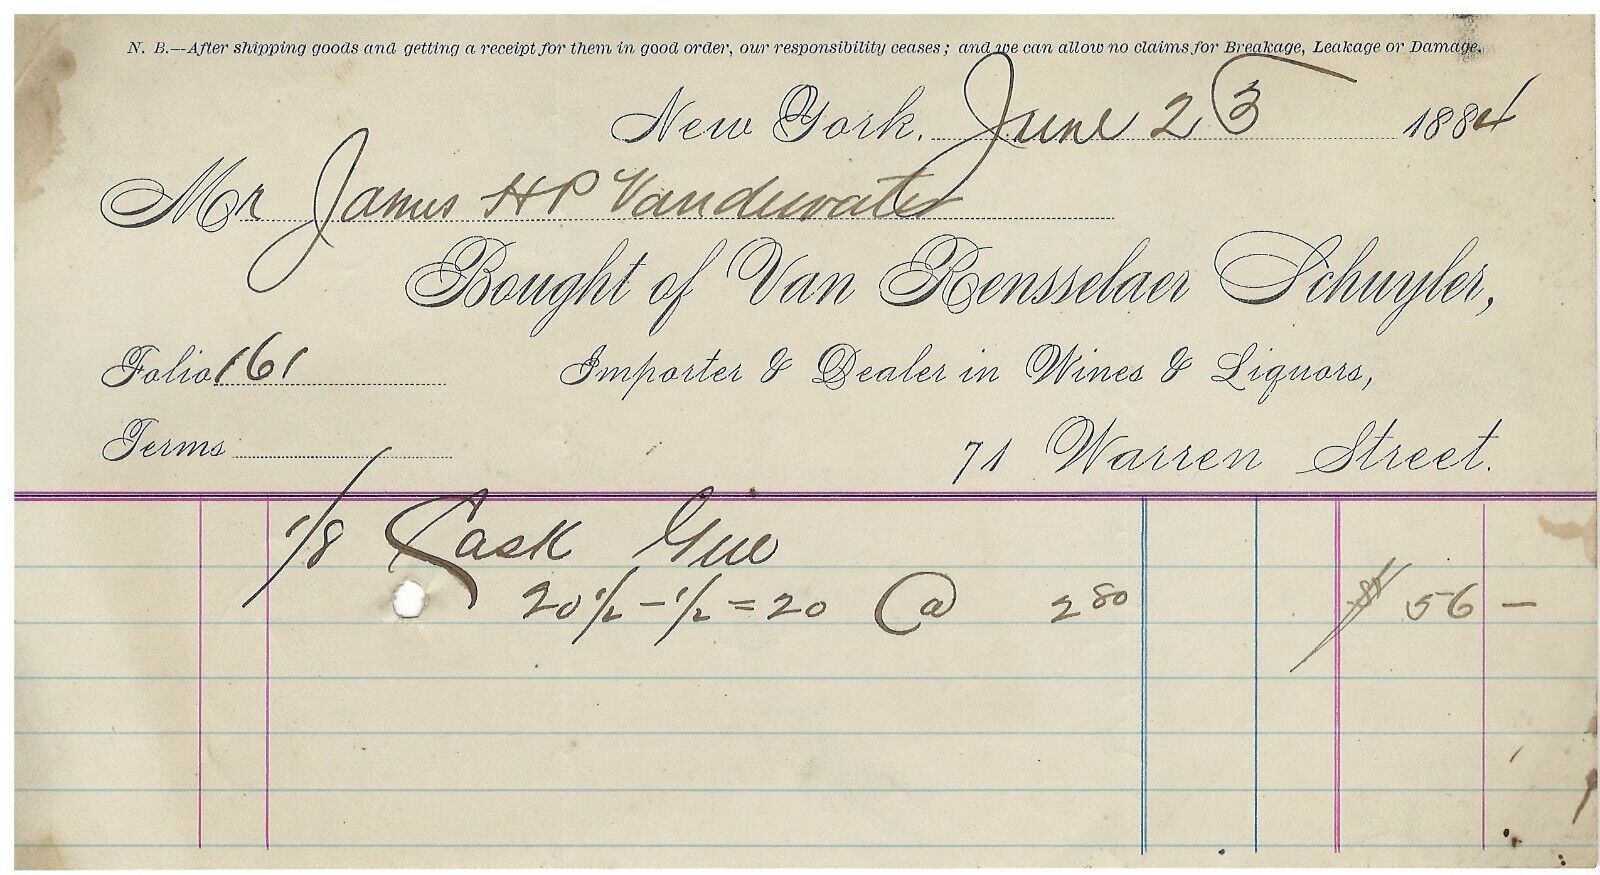 N. B.—After shipping goods and getting a receipt for them in good order, our responsibility ceases; and we can allow no claims for Breakage, Leakage or Damage.
New York, June 23 1884
Mr James H P Vandewater
Bought of Van Rensselaer Schuyler,
Folio 161 Importer & Dealer in Wines & Liquors,
Terms 71 Warren Street.
1/8 Cask
20 1/2 - 1/2 = 20 @ 2 80 56 —